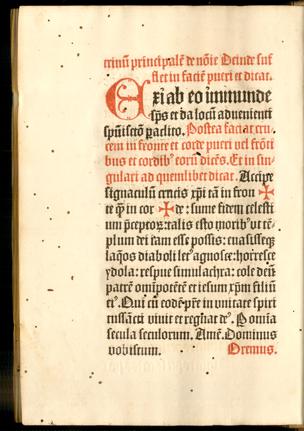 trinū principalē de nōīe Deinde suf
flet in faciē pueri et dicat.
Exi ab eo immunde
sp̄s et da locū aduenienti
spūi sctō paclito. Postea faciat cru
cem in fronte et corde pueri vel frōti
bus et cordib' eorū dicēs. Et in sin
gulari ad quemlibet dicat. Accipe
signaculū crucis xp̄i tā in fron ✠
te q̄ in cor ✠ de : sume fidem celesti
um p̄ceptoꝝ: talis esto morib' vt tē
plum dei iam esse possis:
laq̄os diaboli agnosce: horresce
ydola: respue simulachra: cole deū
patrē omīpotētē et iesum xp̄m filiū
ei'. Qui cū eodē p̄re in vnitate spiri
tussācti viuit et regnat de'. P om̄ia
secula seculorum. Amē. Dominus
vobiscum. Oremus.